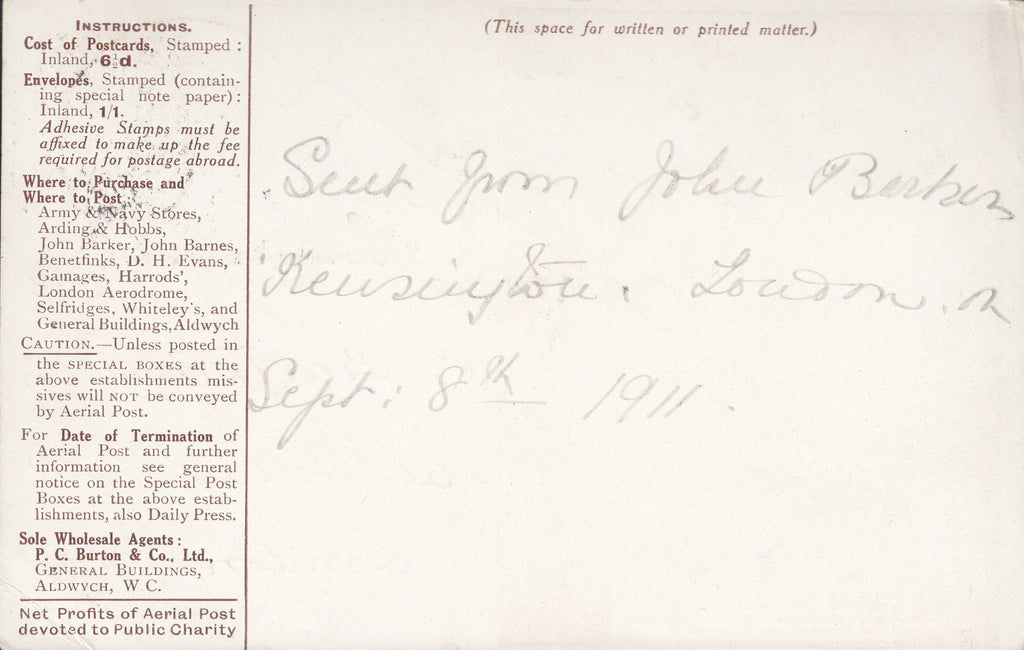 INSTRUCTIONS.
Cost of Postcards, Stamped :
Inland, 6½d.
Envelopes, Stamped (contain-
ing special note paper) :
Inland, 1/1.
Adhesive Stamps must be
affixed to make up the fee
required for postage abroad.
Where to Purchase and
Where to Post :
Army & Navy Stores,
Arding & Hobbs,
John Barker, John Barnes,
Benetfinks, D. H. Evans,
Gamages, Harrods',
London Aerodrome,
Selfridges, Whiteley's, and
General Buildings, Aldwych
CAUTION.—Unless posted in
the SPECIAL BOXES at the
above establishments mis-
sives will NOT be conveyed
by Aerial Post.
For Date of Termination of
Aerial Post and further
information see general
notice on the Special Post
Boxes at the above estab-
lishments, also Daily Press.
Sole Wholesale Agents :
P. C. Burton & Co., Ltd.,
GENERAL BUILDINGS,
ALDWYCH, W C.
Net Profits of Aerial Post
devoted to Public Charity
(This space for written or printed matter.)
Sent from John Barkers
Kensington. London. on
Sept: 8th 1911.